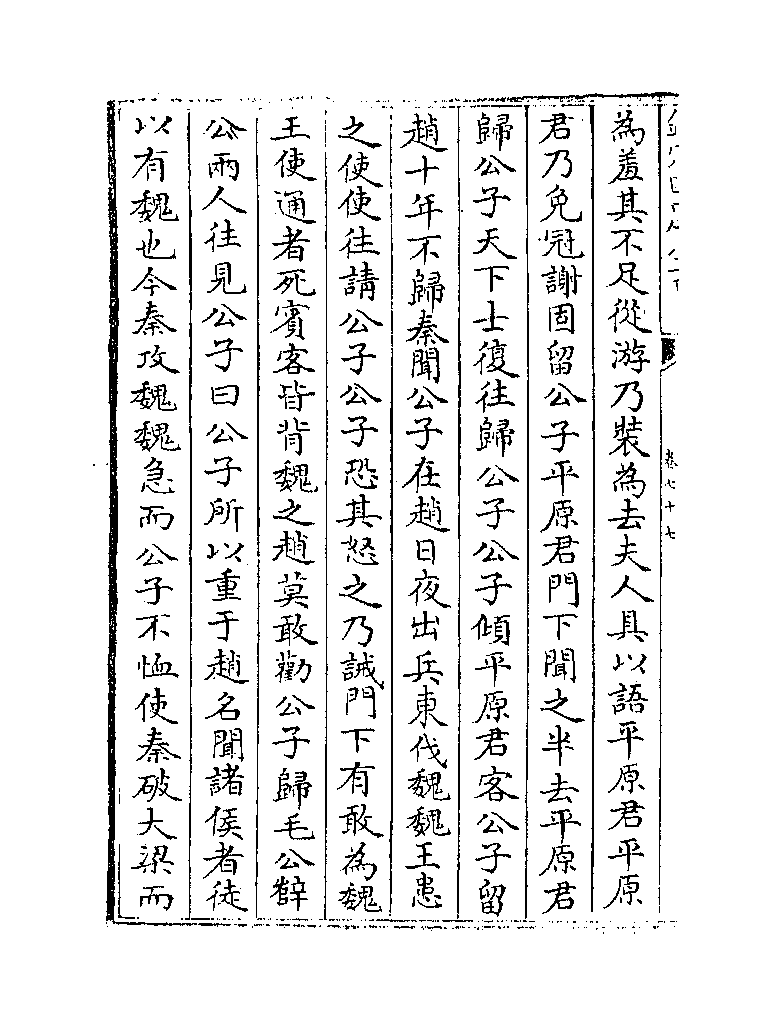 卷七十七
為羞其不足從游乃裝為去夫人具以語平原君平原
君乃免冠謝固留公子平原君門下聞之半去平原君
歸公子天下士復往歸公子公子傾平原君客公子留
趙十年不歸秦聞公子在趙日夜出兵東伐魏魏王患
之使使往請公子公子恐其怒之乃誡門下有敢為魏
王使通者死賓客皆背魏之趙莫敢勸公子歸毛公薛
公兩人往見公子曰公子所以重于趙名聞諸侯者徒
以有魏也今秦攻魏魏急而公子不恤使秦破大梁而